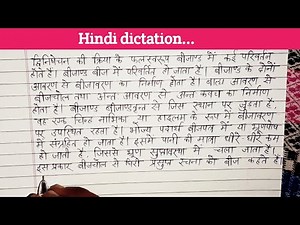 Hindi dictation...
द्विनिषेचन की क्रिया के फलस्वरूप बीजाण्ड में कई परिवर्तन
होते हैं। बीजाण्ड बीज में परिवर्तित हो जाता है। बीजाण्ड के दोनों
आवरण से बीजावरण का निर्माण होता है। बाह्य आवरण से
बीजचोल तथा अन्तः आवरण से अन्तः कवच का निर्माण
होता है। बीजाण्ड बीजाण्डवृन्त से जिस स्थान पर जुड़ता है,
वह रजक चिन्ह नाभिका या हाइलम के रूप में बीजावरण
पर उपस्थित रहता है। भोज्य पदार्थ बीजपत्रों में या भ्रूणपोष
में संग्रहित हो जाता है। इसमें पानी की मात्रा धीरे धीरे कम
हो जाती है, जिससे भ्रूण सुप्तावस्था में चला जाता है।
इस प्रकार बीजचोल से घिरी प्रसुप्त रचना को बीज कहते हैं।